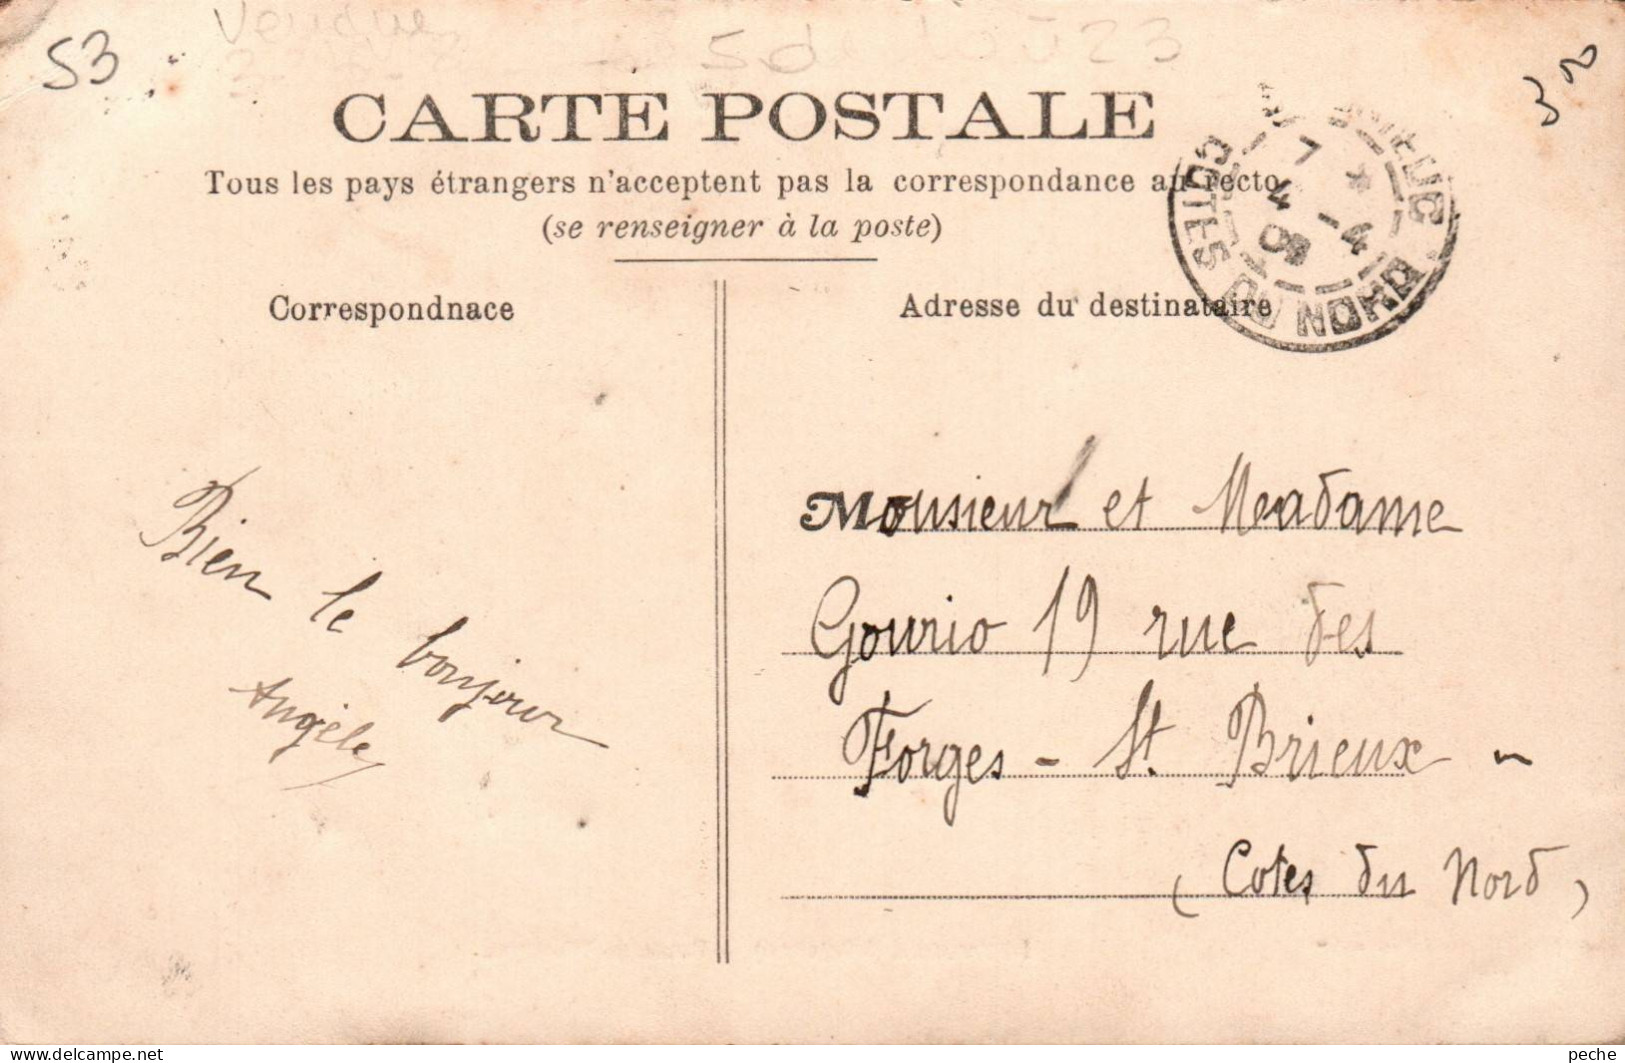 53
3
CARTE POSTALE
Tous les pays étrangers n'acceptent pas la correspondance au recto
(se renseigner à la poste)
COTES DU NORD
7
4
-4
Correspondnace
Adresse du destinataire
Bien le bonjour
Angèle
Monsieur et Meadame
Gourio 19 rue des
Forges - St. Brieux -
(Cotes du Nord)
peche